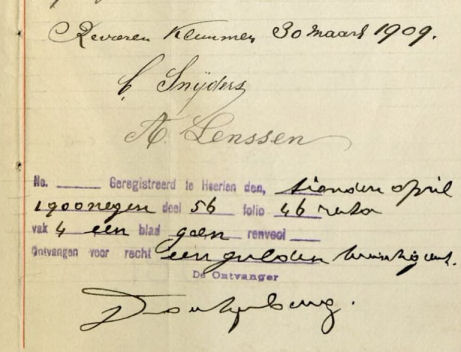 Klimmen, 30 maart 1909.
Snijders
A. Lenssen
No. Geregistreerd te Heerlen den, tienden april
1900negen deel 56 folio 46 recto
vak 4 een blad geen renvooi
Ontvangen voor recht een gulden twintig cent.
De Ontvanger